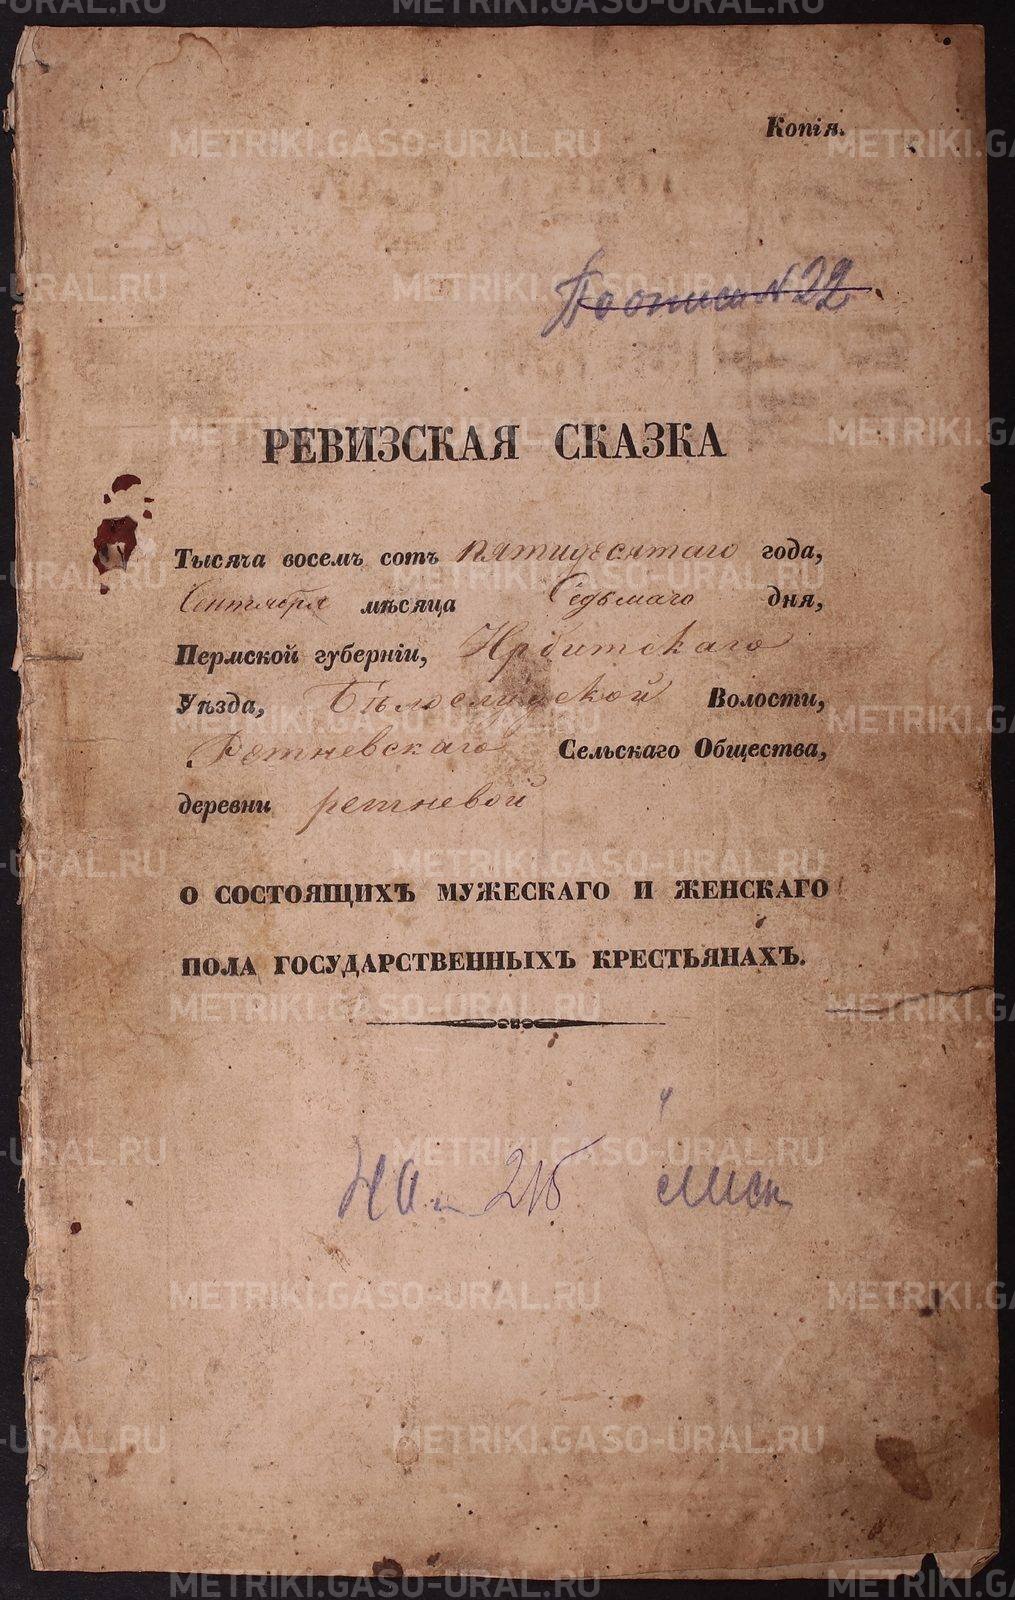 Копія.
По описи №22
РЕВИЗСКАЯ СКАЗКА
Тысяча восемь сотъ пятидесятаго года,
Сентября мѣсяца Седьмаго дня,
Пермской губерніи, Ирбитскаго
Уѣзда, Бѣлослудской Волости,
Ретневскаго Сельскаго Общества,
деревни ретневой
О СОСТОЯЩИХЪ МУЖЕСКАГО И ЖЕНСКАГО
ПОЛА ГОСУДАРСТВЕННЫХЪ КРЕСТЬЯНАХЪ.
На
METRIKI.GASO-URAL.RU